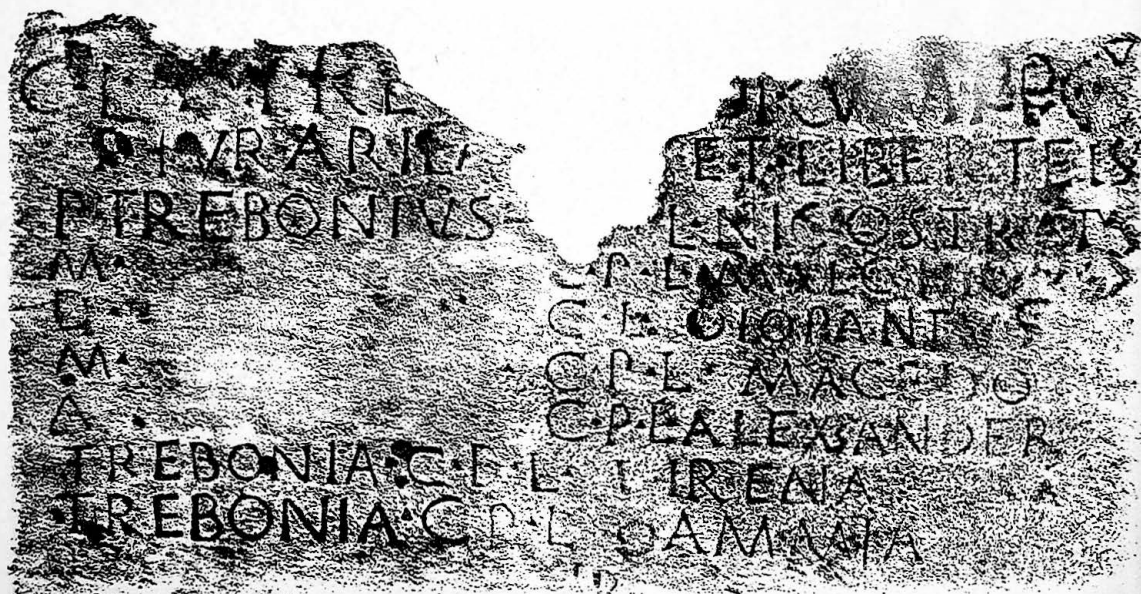 TRE
HVRARIEI ET·LIBERTEIS
P·TREBONIVS L·NICOSTRATVS
M· C·P·L·MALCHIO
D· C· L· OLOPANTVS
M· C·P·L· MACEDO
A· C·P·L·ALEXSANDER
TREBONIA·C·P·L· IRENA
TREBONIA·C·P·L AMMIA